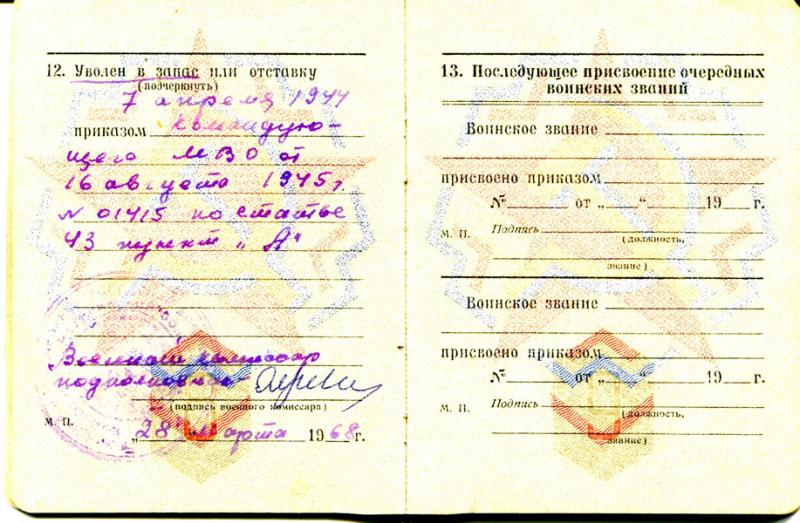 12. Уволен в запас или отставку
(подчеркнуть)
7 апреля 1944
приказом Командую-
щего МВО от
16 августа 1945 г.
N 01415 по статье
43 пункт „А"
Военный комиссар
подполковник
(подпись военного комиссара)
М. П.
„28" марта 1968 г.
13. Последующее присвоение очередных
воинских званий
Воинское звание
присвоено приказом
№ от „ “ 19 г.
М. П. Подпись
(должность,
звание)
Воинское звание
присвоено приказом
№ от „ “ 19 г.
М. П. Подпись
(должность,
звание)